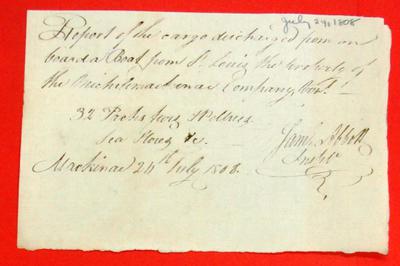 July 24, 1808
Report of the cargo discharged from on
board a Boat from St. Louis the property of
the Michilimackinac Company Vizt.
32 Packs furs & Peltries
&c.
Saml. Abbott
Mackinac 24th July 1808.